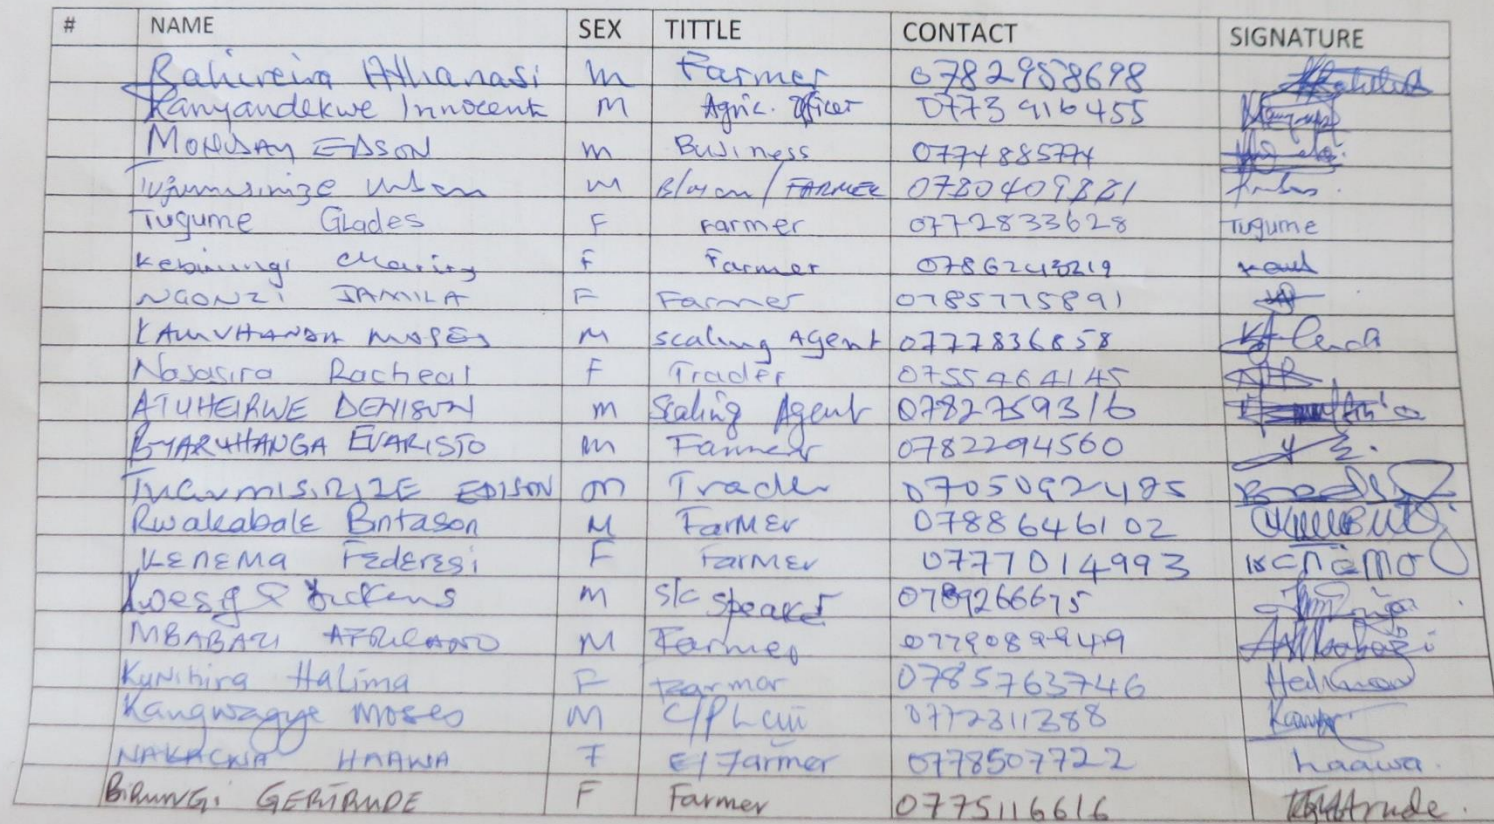 # NAME SEX TITTLE CONTACT SIGNATURE
Bahireira Athanasi M Farmer 0782958698
Kanyandekwe Innocent M Agric. Officer 0773916455
MONDAY EDSON M Business 0774885774
Urban M B/man / FARMER 0780409821
Tugume Glades F Farmer 0772833628 Tugume
Kebirungi Charity F Farmer 0786243219
NGONZI JAMILA F Farmer 0785775891
KAMUHANDA MOSES M Scaling Agent 0777836858
Nasasira Racheal F Trader 0755464145
ATUHEIRWE DENISON M Scaling Agent 0782759316
BYARUHANGA EVARISTO M Farmer 0782294560
EDISON M Trader 0705092485
Rwakabale Bntason M Farmer 0788646102
KENEMA Federesi F Farmer 0777014993 Kenemo
Kwesiga Dickens M S/C Speaker 0789266675
MBABAZI AFRICANO M Farmer 0779089949 Mbabazi
Kunihira Halima F Farmer 0785763746
Kangwagye Moses M C/P LCIII 0772311388
NAKACWA HAAWA F E/Farmer 0778507722 haawa.
BIRUNGI GERTRUDE F Farmer 0775116616